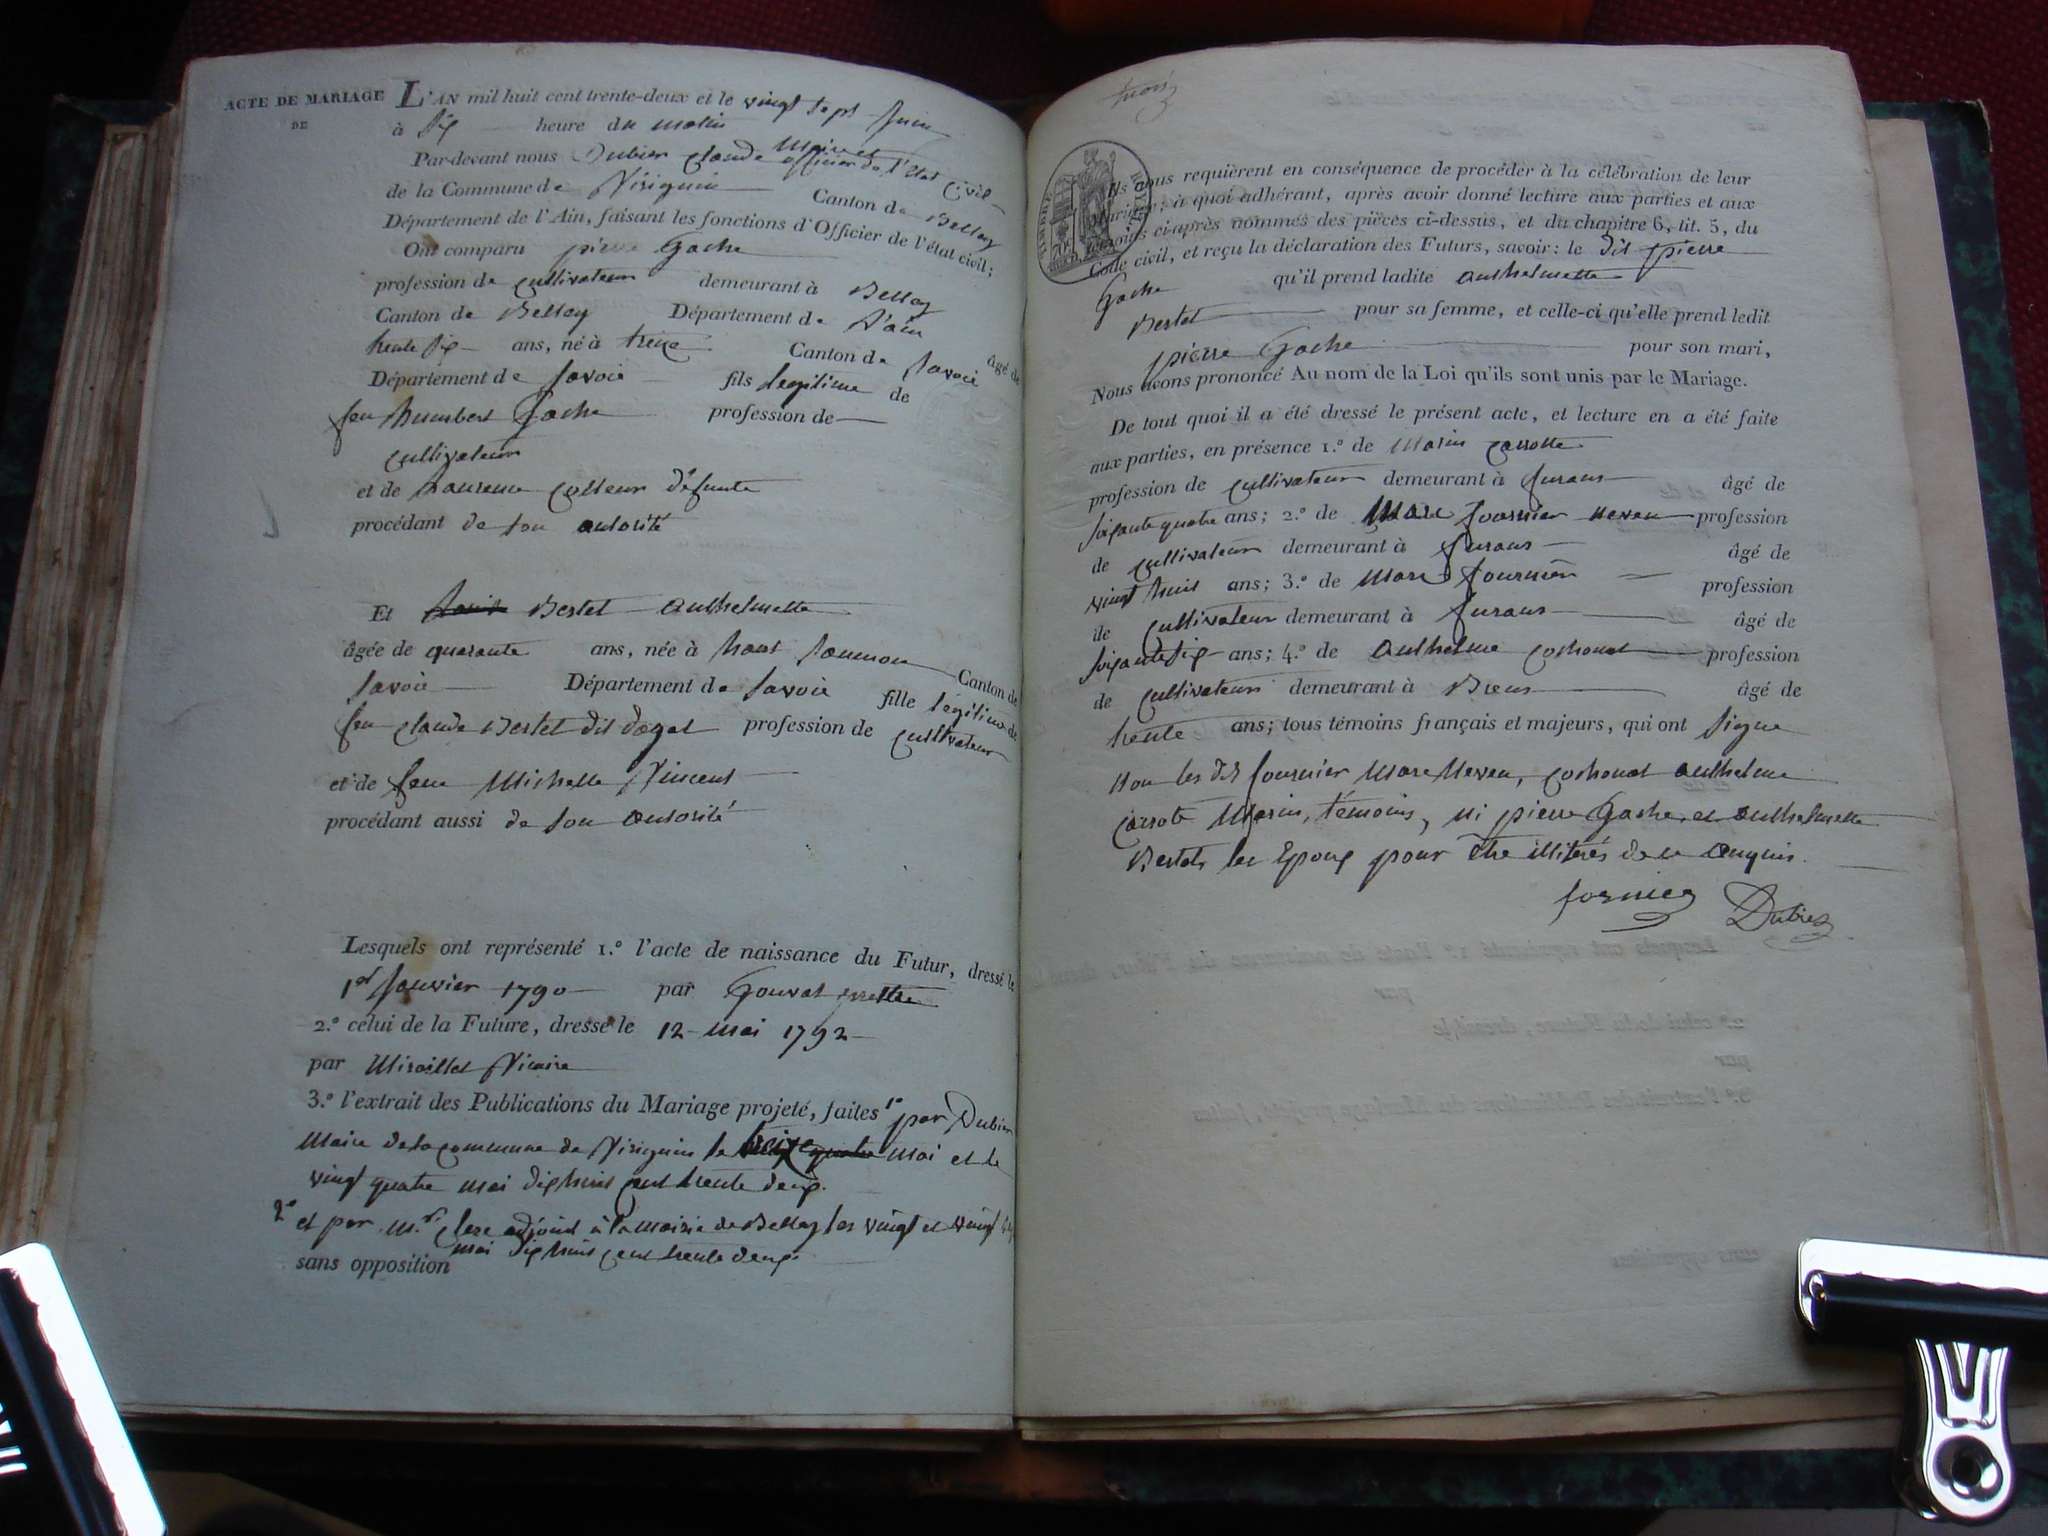 ACTE DE MARIAGE
DE
L'AN mil huit cent trente-deux et le vingt sept Juin
à dix heure du matin
Par-devant nous Dubier Claude Maire et officier de l'état Civil
de la Commune de Virignin Canton de Belley
Département de l'Ain, faisant les fonctions d'Officier de l'état civil;
Ont comparu pierre Gache
profession de cultivateur demeurant à Belley
Canton de Belley Département de L'ain âgé de
trente dix ans, né à Canton de Savoie
Département de Savoie fils légitime de
feu humbert Gache profession de
cultivateur
et de Laurence défunte
procédant de son autorité
Et Bertet anthelmette
âgée de quarante ans, née à Canton de
Savoie Département de Savoie fille légitime de
feu claude Bertet dit profession de cultivateur
et de feue Michelle Vincent
procédant aussi de son autorité
Lesquels ont représenté 1.º l'acte de naissance du Futur, dressé le
1er Janvier 1790 par
2.º celui de la Future, dressé le 12 mai 1792
par Vicaire
3.º l'extrait des Publications du Mariage projeté, faites 1º par Dubier
Maire de la commune de Virignin le treize quatre mai et le
vingt quatre mai dixhuit cent trente deux.
2º et par mr. adjoint à la mairie de Belley les vingt et vingt
mai dixhuit cent trente deux
sans opposition
TIMBRE ROYAL
Ils nous requièrent en conséquence de procéder à la célébration de leur
Mariage; à quoi adhérant, après avoir donné lecture aux parties et aux
témoins ci-après nommés des pièces ci-dessus, et du chapitre 6, tit. 5, du
Code civil, et reçu la déclaration des Futurs, savoir: le dit pierre
Gache qu'il prend ladite anthelmette
Bertet pour sa femme, et celle-ci qu'elle prend ledit
pierre Gache pour son mari,
Nous avons prononcé Au nom de la Loi qu'ils sont unis par le Mariage.
De tout quoi il a été dressé le présent acte, et lecture en a été faite
aux parties, en présence 1.º de Marin Carrotte
profession de cultivateur demeurant à furans âgé de
soixante quatre ans; 2.º de Marc fournier neveu profession
de cultivateur demeurant à furans âgé de
vingt huit ans; 3.º de Marc fournier profession
de cultivateur demeurant à furans âgé de
soixante dix ans; 4.º de anthelme cochonat profession
de cultivateur demeurant à Brens âgé de
trente ans; tous témoins français et majeurs, qui ont signé
non les dits fournier Marc Neveu, cochonat anthelme
Carrote Marin, témoins, ni pierre Gache et anthelmette
Bertet les Epoux pour être illitérés de ce enquis.
fornier Dubier